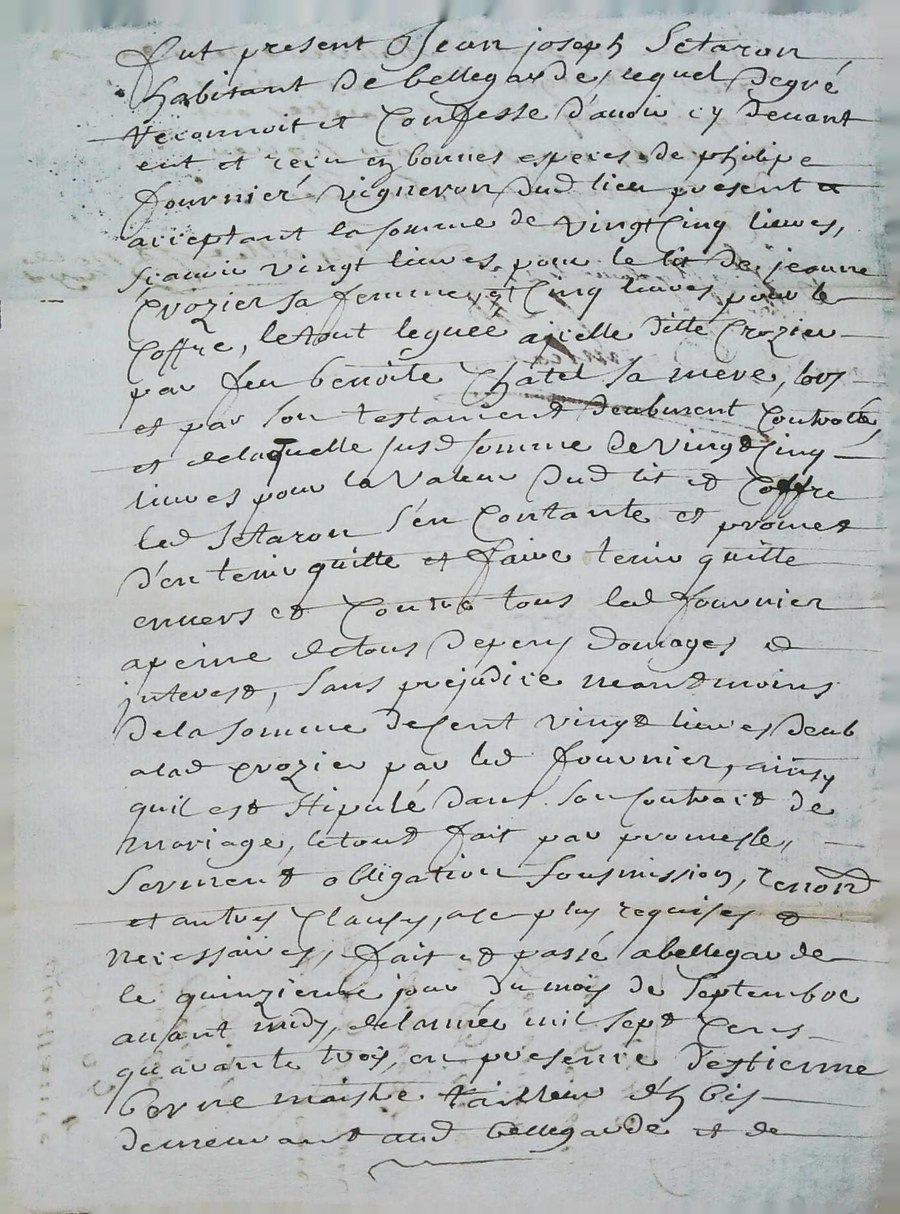 fut present Jean joseph Setaron
habitant de bellegarde, lequel degré
reconnoit et Confesse d'avoir cy devant
eut et recu en bonnes especes de philipe
fournier vigneron dud lieu present et
acceptant la somme de vingt Cinq livres,
scavoir vingt livres pour le lit de jeanne
Crozier sa femme, et Cinq livres pour le
Coffre, le tout leguée a jcelle ditte Crozier
par feu benoite Châtel sa mere, lors
et par son testament deubment Controllé,
et delaquelle susd somme de vingt Cinq
livres pour la valeur dud lit et Coffre
led Setaron s'en Contante et promet
d'en tenir quitte et faire tenir quitte
envers et Contre tous led fournier
apeine detous depens domages et
interest, sans prejudice neantmoins
dela somme deCent vingt livres deub
alad Crozier par led fournier, ainsy
quil est stipulé dans son Contrait de
mariage, letout fait par promesse,
serment obligation sousmission, renond
et autres Clauses, ace plus requises et
necessaires, fait et passé abellegarde
le quinzieme jour du mois de septembre
avant midy, delannée mil sept Cens
quarante trois, en presence d'estienne
berne maistre tailleur d'hbis
demeurant aud bellegarde et de